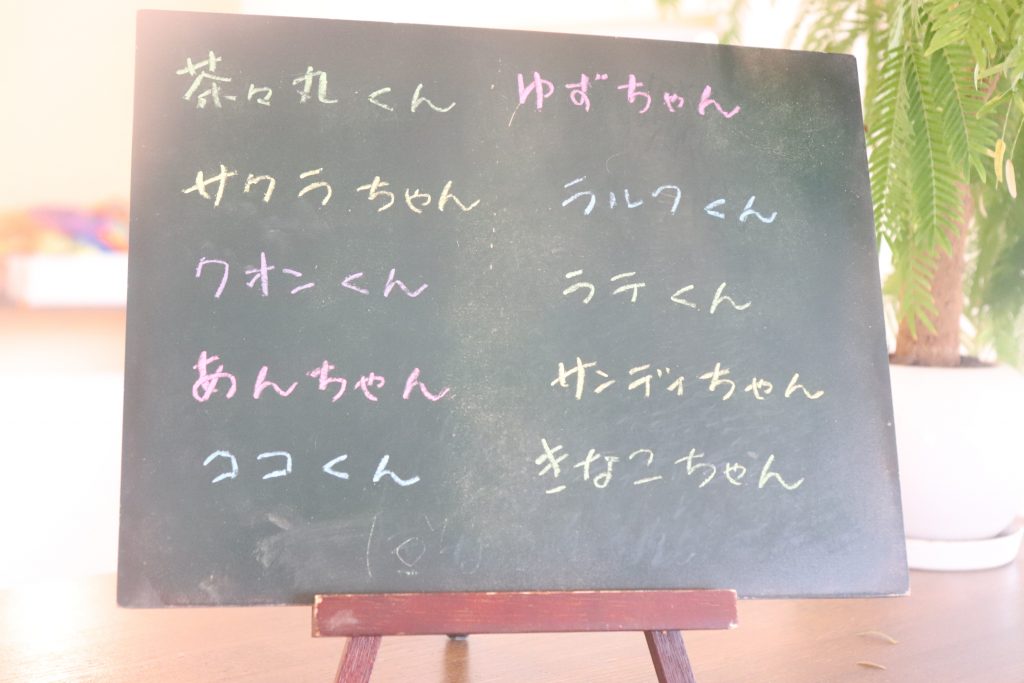 茶々丸くん ゆずちゃん
サクラちゃん ラルクくん
クオンくん ラテくん
あんちゃん サンディちゃん
ココくん きなこちゃん